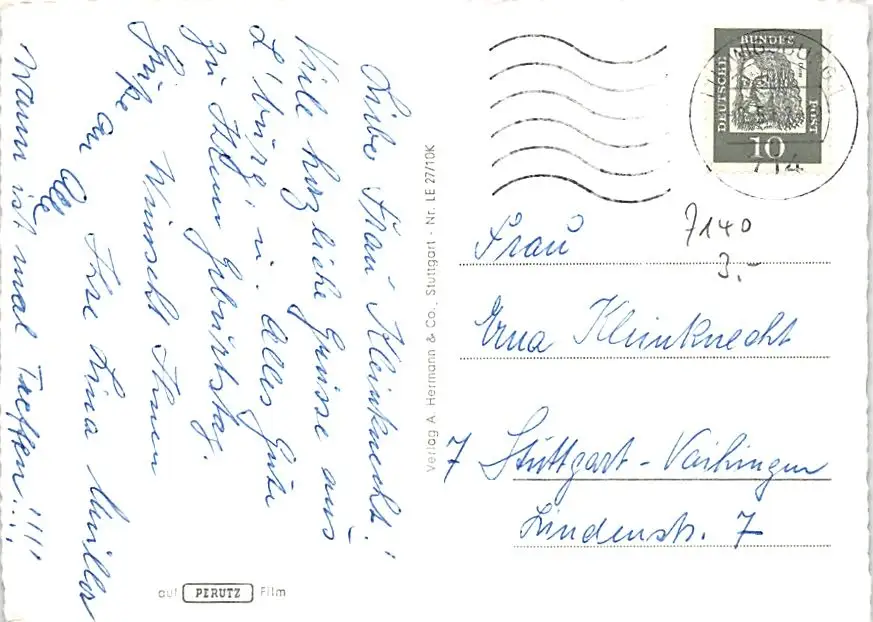 Liebe Frau Kleinknecht!
Viele herzliche Grüsse aus
L'burg u. Alles Gute
zu Ihrem Geburtstag.
Wünscht Ihnen
Ihre Lina
Grüße an Alle
Wann ist mal Treffen!!!!
Verlag A. Hermann & Co., Stuttgart - Nr. LE 27/10K
auf PERUTZ Film
DEUTSCHE BUNDES POST
10
7140
3.-
Frau
Erna Kleinknecht
7 Stuttgart-Vaihingen
Lindenstr. 7